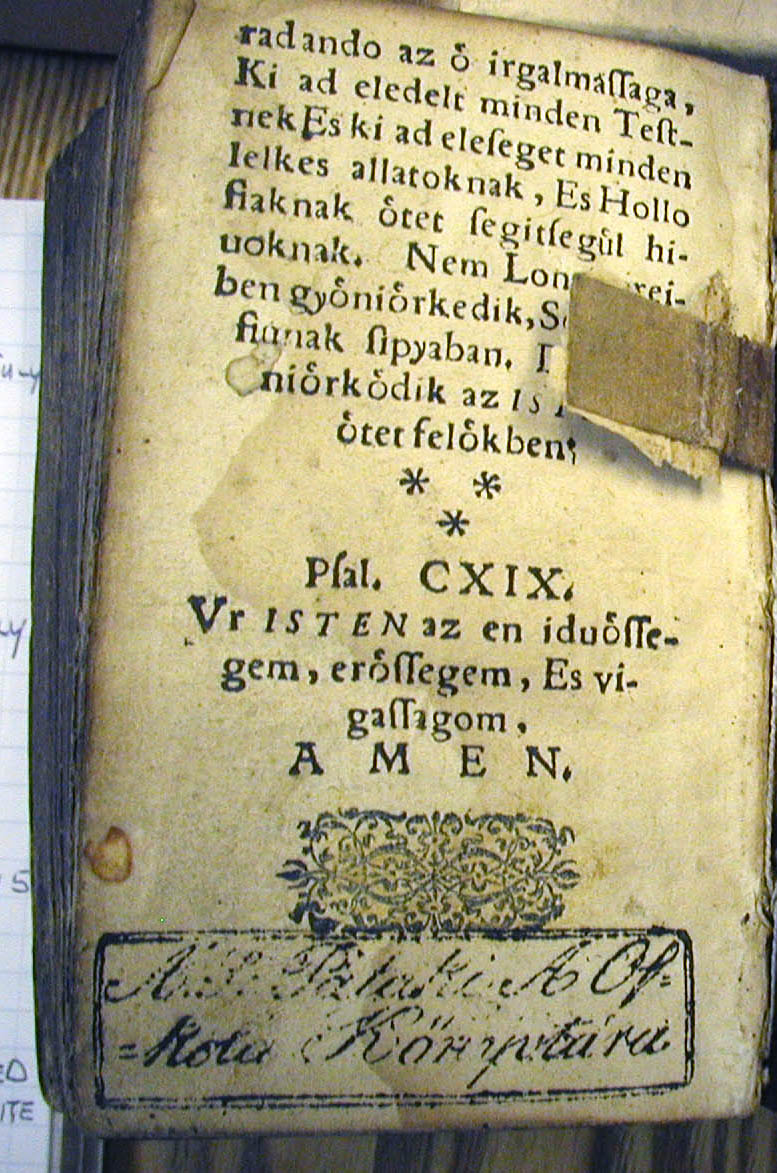 radando az ő irgalmaſſaga,
Ki ad eledelt minden Teſt-
nek Es ki ad eleſeget minden
lelkes allatoknak, Es Hollo
fiaknak ötet ſegitſegül hi-
uoknak. Nem
ben gyöniörkedik,
fiunak ſipyaban.
niörködik az
ötet felökben;
* *
*
Pſal. CXIX.
Vr ISTEN az en iduöſſe-
gem, eröſſegem, Es vi-
gaſſagom,
A M E N.
A. S. Pataki A Os-
=kola Könyvtára